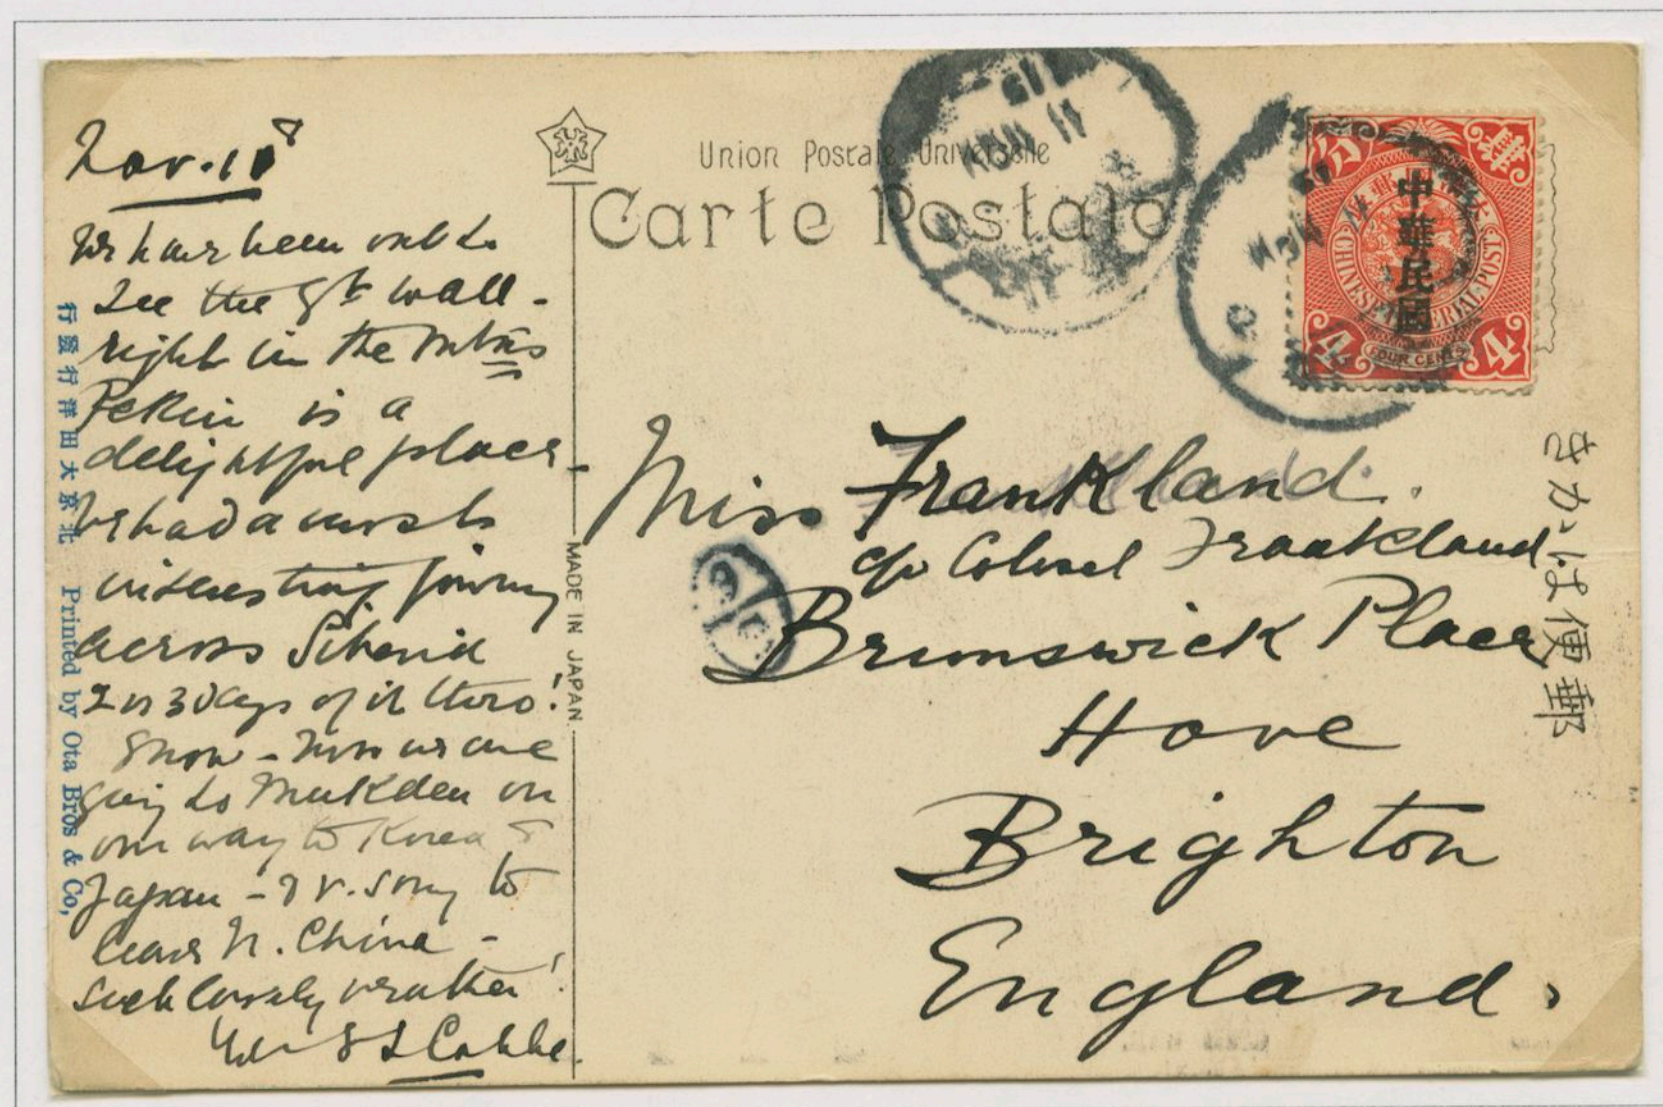 Nov. 10
We have been out to
See the Gt wall -
right in the mtns
Pekin is a
delightful place -
We had a most
interesting journey
across Siberia
2 or 3 days of it thro!
Snow - Now we are
going to Mukden on
our way to Korea &
Japan - I v. sorry to
leave N. China -
such lovely weather!
Cobbe.
行發行洋田大京北 Printed by Ota Bros & Co,
MADE IN JAPAN
Union Postale Universelle
Carte Postale
中華民國
CHINESE IMPERIAL POST
4 FOUR CENTS 4
Miss Frankland.
c/o Colonel Frankland
Brunswick Place
Hove
Brighton
England.
きかは便郵